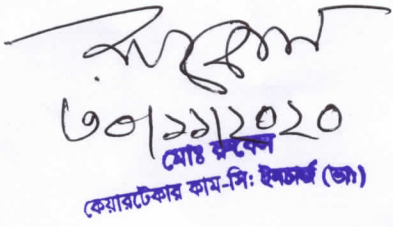 রুবেল
৩০/১১/২০২০
মোঃ রুবেল
কেয়ারটেকার কাম-সি: ইনচার্জ (ভাঃ)